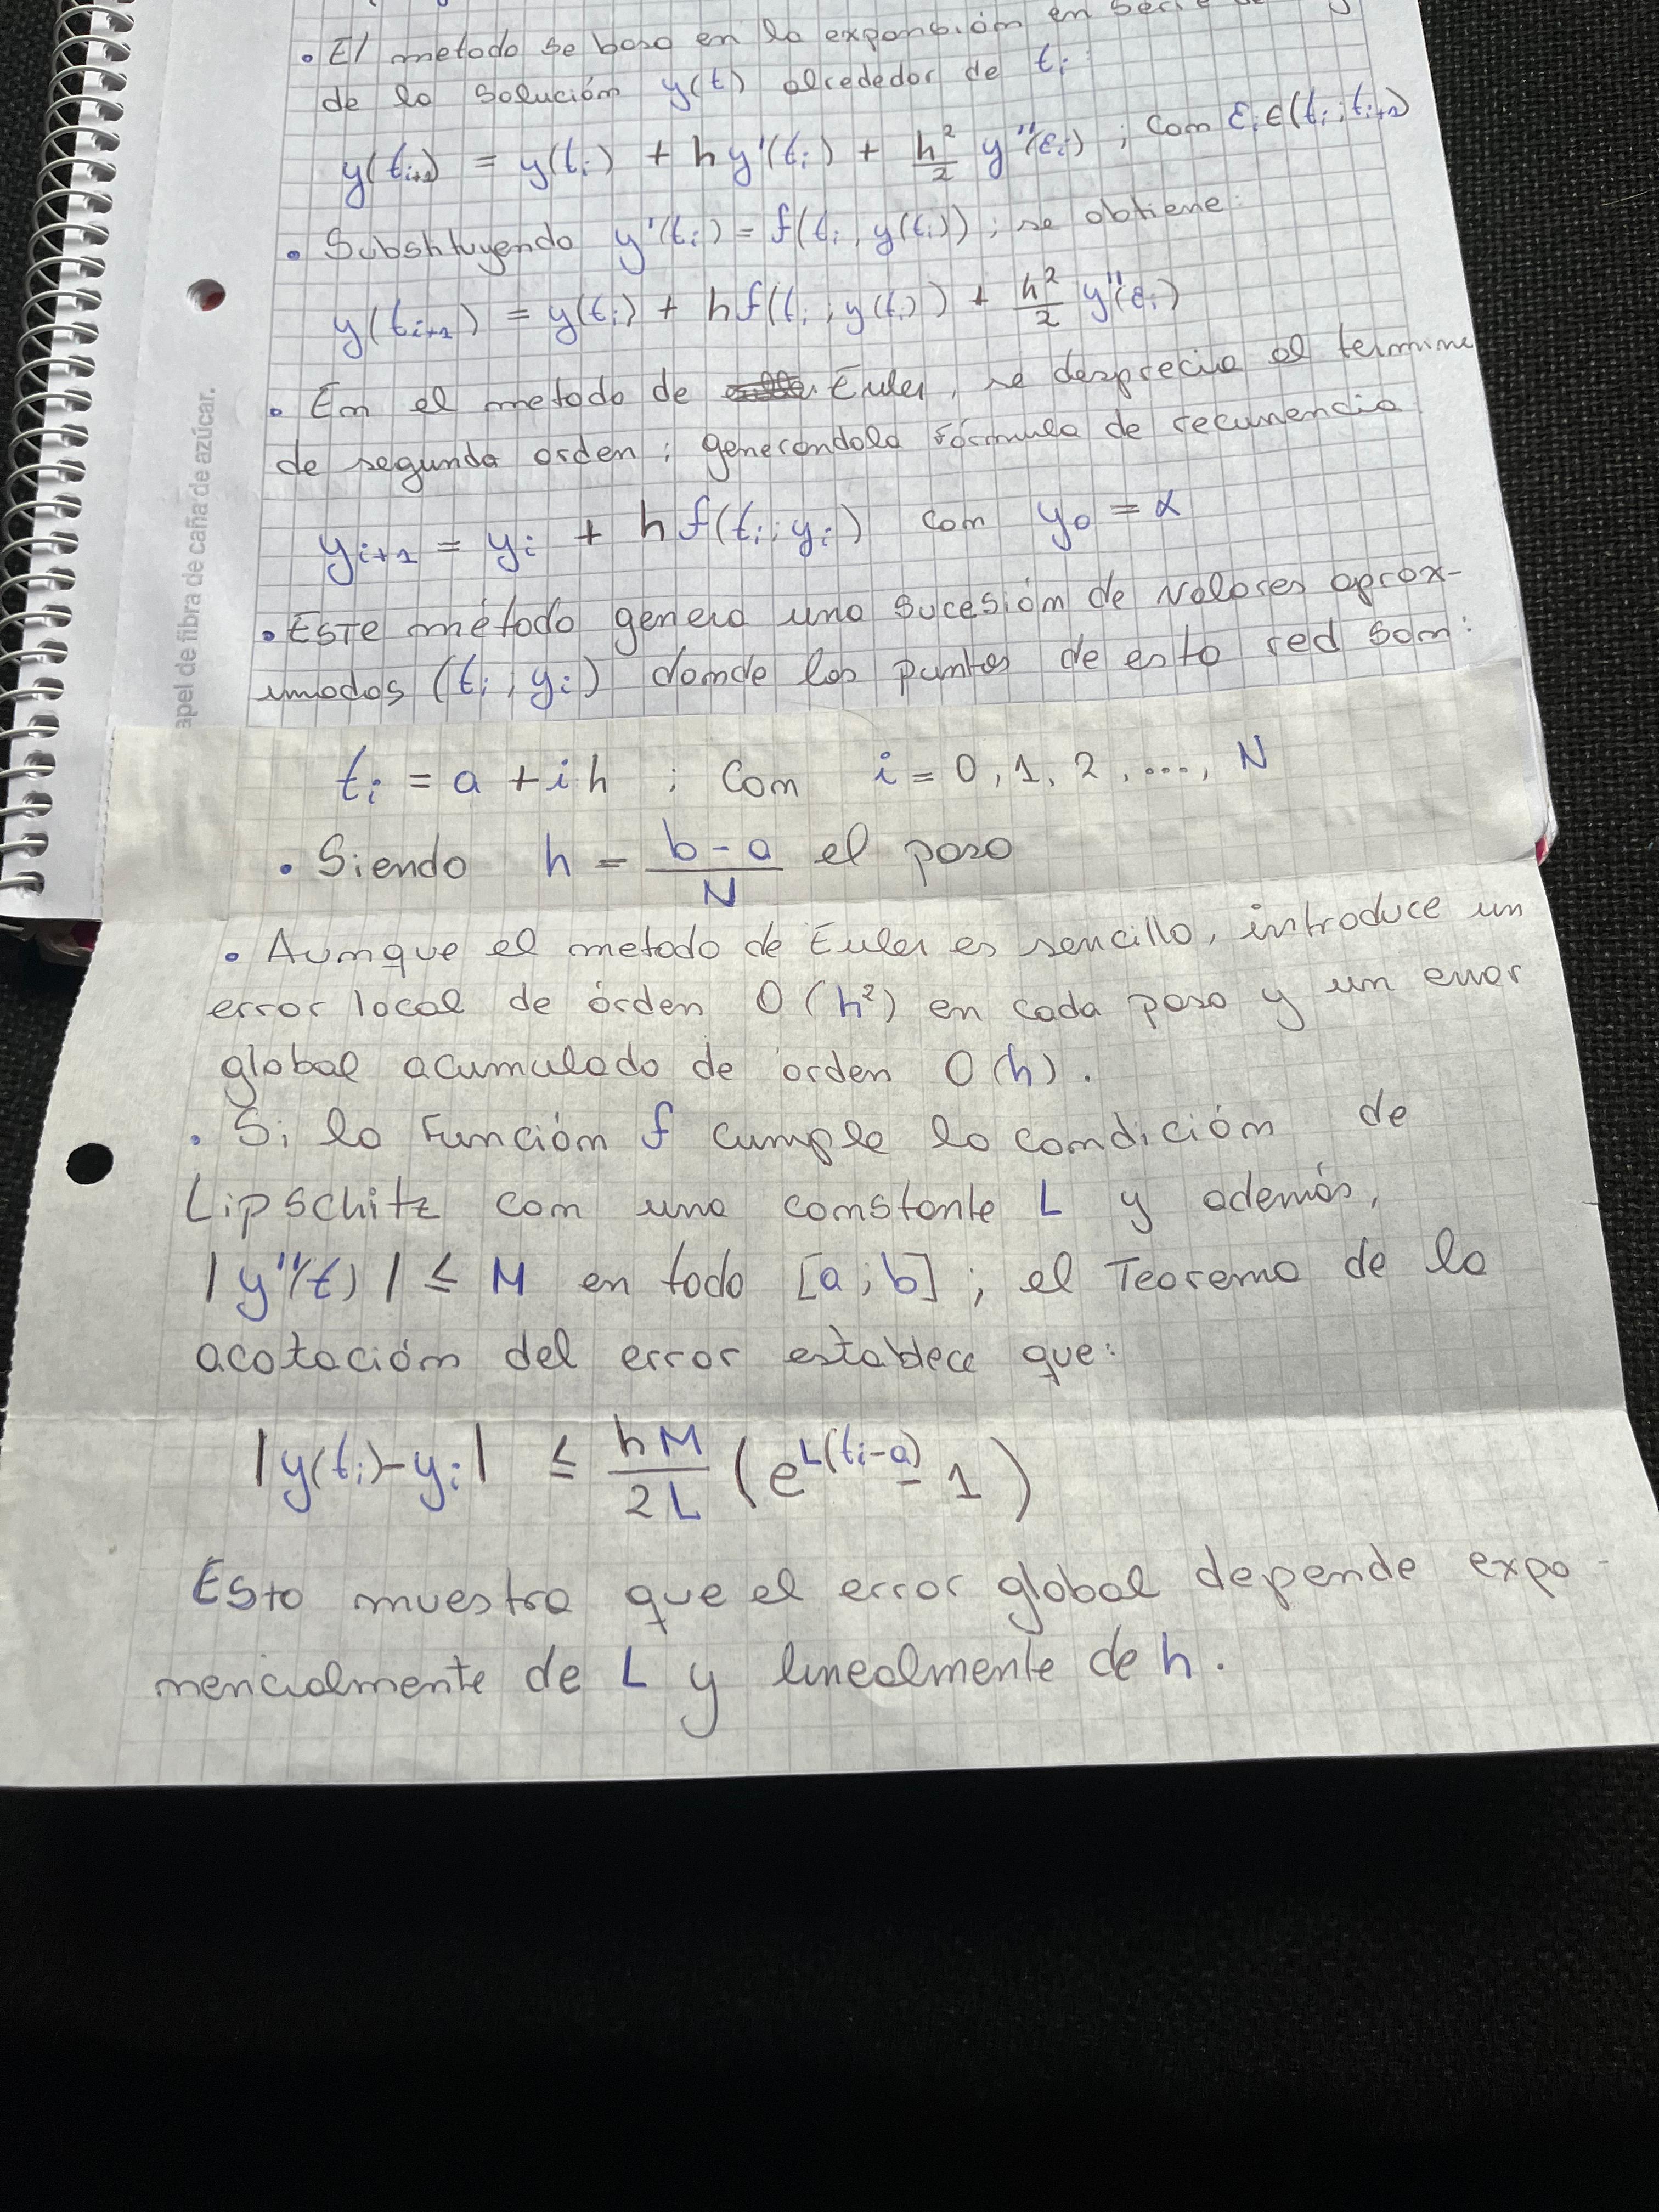 • El metodo se basa en la expansión en serie de
de la solución y(t) alrededor de tᵢ:
y(tᵢ₊₁) = y(tᵢ) + hy'(tᵢ) + h²/2 y''(εᵢ) ; con εᵢ ∈ (tᵢ ; tᵢ₊₁)
• Substituyendo y'(tᵢ) = f(tᵢ, y(tᵢ)) ; se obtiene:
y(tᵢ₊₁) = y(tᵢ) + hf(tᵢ, y(tᵢ)) + h²/2 y''(εᵢ)
• En el metodo de Euler, se desprecia el termino
de segunda orden ; generandola fórmula de recurrencia
yᵢ₊₁ = yᵢ + hf(tᵢ; yᵢ) con y₀ = α
• Este método genera una sucesión de valores aprox-
imados (tᵢ ; yᵢ) donde los puntos de esta red son:
tᵢ = a + ih ; con i = 0, 1, 2, ..., N
• Siendo h = (b - a)/N el paso
• Aunque el metodo de Euler es sencillo, introduce un
error local de órden O(h²) en cada paso y un error
global acumulado de orden O(h).
• Si la Función f cumple la condición de
Lipschitz con una constante L y además,
|y''(t)| ≤ M en todo [a ; b] ; el Teorema de la
acotación del error establece que:
|y(tᵢ) - yᵢ| ≤ hM/2L (e^L(tᵢ-a) - 1)
Esto muestra que el error global depende expo-
nencialmente de L y linealmente de h.
apel de fibra de caña de azúcar.